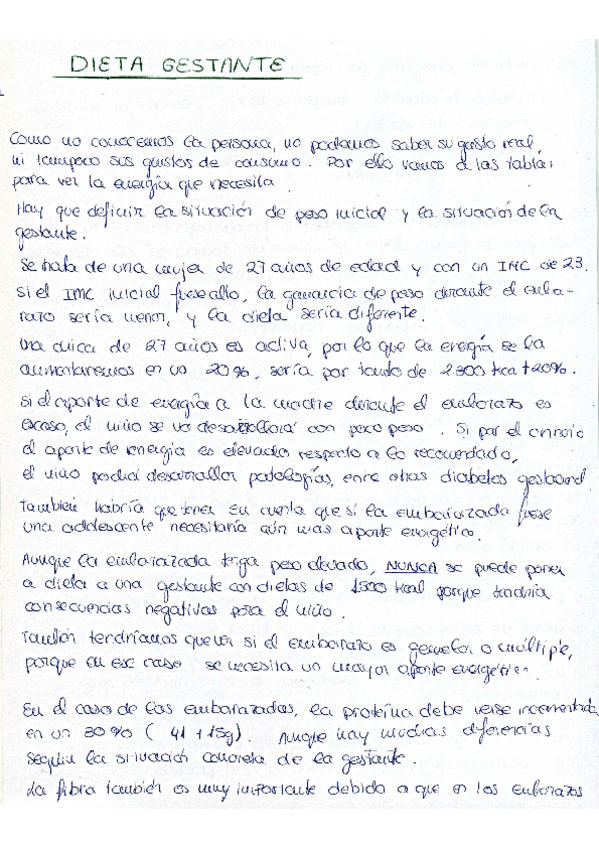 DIETA GESTANTE
Como no conocemos la persona, no podemos saber su gasto real,
ni tampoco sus gustos de consumo. Por ello vamos a las tablas
para ver la energía que necesita.
Hay que definir la situación de peso inicial y la situación de la
gestante.
Se trata de una mujer de 27 años de edad y con un IMC de 23.
Si el IMC inicial fuese alto, la ganancia de peso durante el emba-
razo sería menor, y la dieta sería diferente.
Una chica de 27 años es activa, por lo que la energía se la
aumentaremos en un 20%, sería por tanto de 2.300 kcal +20%.
Si el aporte de energía a la madre durante el embarazo es
escaso, el niño se va desarrollará con poco peso. Si por el contrario
el aporte de energía es elevado respecto a lo recomendado,
el niño podría desarrollar patologías, entre otras diabetes gestacional.
También habría que tener en cuenta que si la embarazada fuese
una adolescente necesitaría aún más aporte energético.
Aunque la embarazada tenga peso elevado, NUNCA se puede poner
a dieta a una gestante con dietas de 1500 kcal porque tendría
consecuencias negativas para el niño.
También tendríamos que ver si el embarazo es gemelar o múltiple,
porque en ese caso se necesita un mayor aporte energético.
En el caso de las embarazadas, la proteína debe verse incrementada
en un 30% ( 41 + 15g). Aunque hay muchas diferencias
según la situación concreta de la gestante.
La fibra también es muy importante debido a que en los embarazos